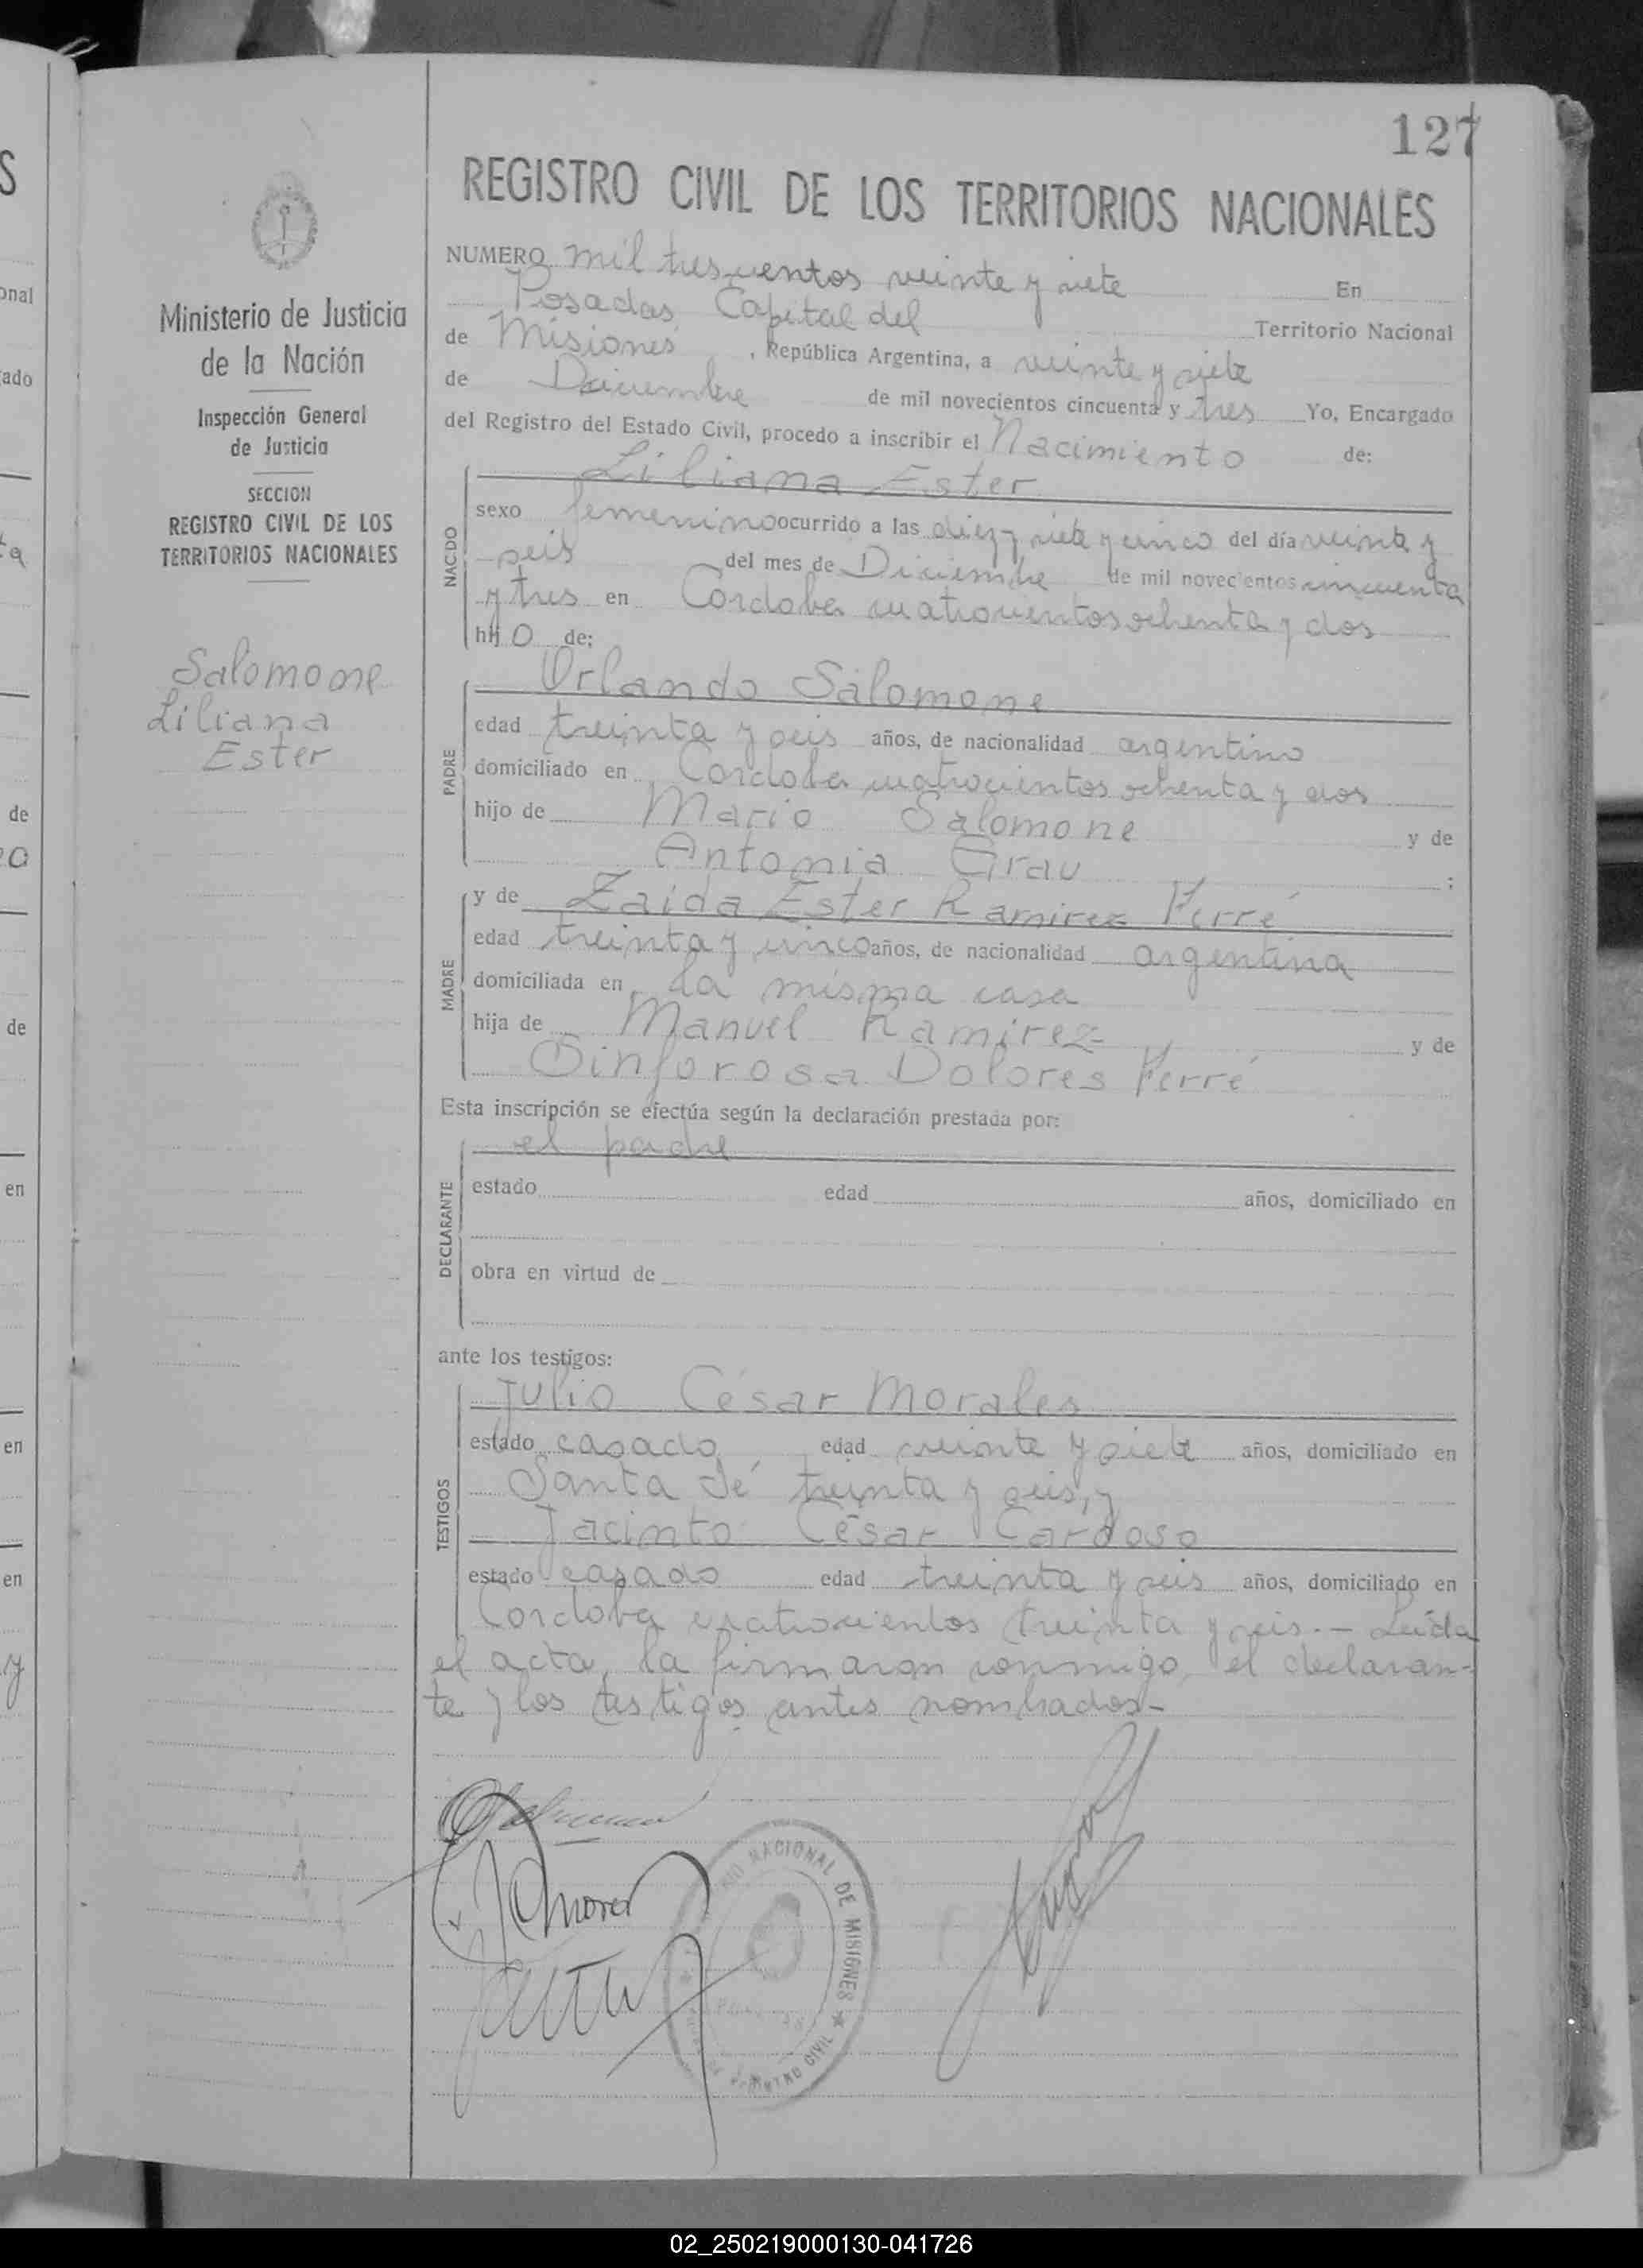 127
REGISTRO CIVIL DE LOS TERRITORIOS NACIONALES
Ministerio de Justicia
de la Nación
Inspección General
de Justicia
SECCION
REGISTRO CIVIL DE LOS
TERRITORIOS NACIONALES
Salomone
Liliana
Ester
NUMERO mil trescientos veinte y siete En
Posadas Capital del Territorio Nacional
de Misiones, República Argentina, a veinte y siete
de Diciembre de mil novecientos cincuenta y tres Yo, Encargado
del Registro del Estado Civil, procedo a inscribir el Nacimiento de:
NACIDO
Liliana Ester
sexo femenino ocurrido a las diez y siete y cinco del día veinte y
seis del mes de Diciembre de mil novecientos cincuenta
y tres en Cordoba cuatrocientos ochenta y dos
hij o de:
PADRE
Orlando Salomone
edad treinta y seis años, de nacionalidad argentino
domiciliado en Cordoba cuatrocientos ochenta y dos
hijo de Mario Salomone y de
Antonia Grau ;
MADRE
y de Zaida Ester Ramirez Ferré
edad treinta y cinco años, de nacionalidad argentina
domiciliada en la misma casa
hija de Manuel Ramirez y de
Sinforosa Dolores Ferré
Esta inscripción se efectúa según la declaración prestada por:
DECLARANTE
el padre
estado edad años, domiciliado en
obra en virtud de
ante los testigos:
TESTIGOS
Julio César Morales
estado casado edad veinte y siete años, domiciliado en
Santa Fé treinta y seis, y
Jacinto César Cardoso
estado casado edad treinta y seis años, domiciliado en
Cordoba cuatrocientos treinta y seis.- Leída
el acta, la firmaron conmigo, el declaran-
te y los testigos antes nombrados-
NACIONAL DE MISIONES
REGISTRO CIVIL
onal
ado
de
de
en
en
en
y
02_250219000130-041726